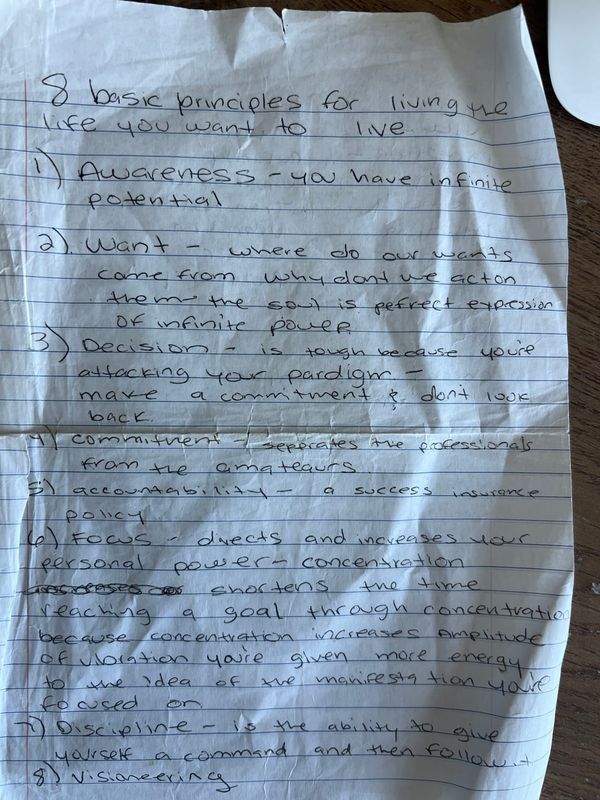 8 basic principles for living the
life you want to live
1) Awareness - you have infinite
potential
2) Want - where do our wants
come from why dont we act on
them the soul is pefrect expression
of infinite power
3) Decision - is tough because you're
attacking your pardigm -
make a commitment & don't look
back.
4) commitment - seperates the professionals
from the amateaurs
5) accountability - a success insurance
policy
6) Focus - directs and increases your
personal power - concentration
shortens the time
reaching a goal through concentration
because concentration increases Amplitude
of vibration you're given more energy
to the idea of the manifestation you're
focused on
7) Discipline - is the ability to give
yourself a command and then follow it
8) Visioneering